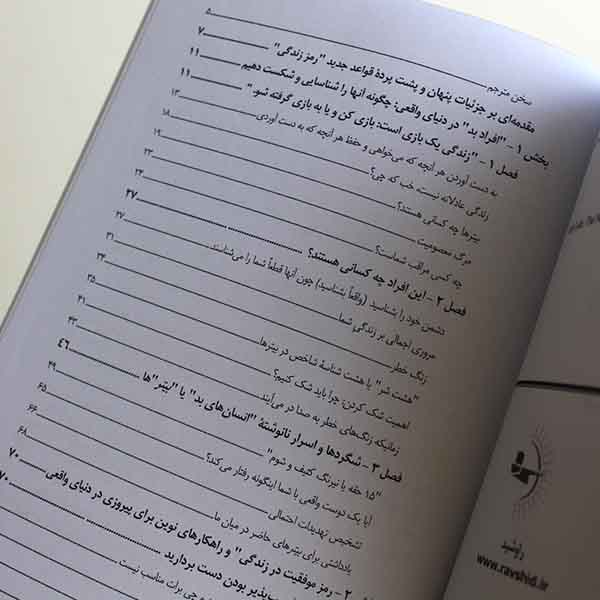 سخن مترجم ۵
مقدمه‌ای بر جزئیات پنهان و پشت پردهٔ قواعد جدید "رمز زندگی" ۷
بخش ۱ – "افراد بد" در دنیای واقعی: چگونه آنها را شناسایی و شکست دهیم ۱۱
فصل ۱ – "زندگی یک بازی است: بازی کن و یا به بازی گرفته شو." ۱۱
به دست آوردن هر آنچه که می‌خواهی و حفظ هر آنچه که به دست آوردی ۱۳
زندگی عادلانه نیست، خب که چی؟ ۱۸
بیترها چه کسانی هستند؟ ۱۹
مرگ معصومیت ۲۳
چه کسی مراقب شماست؟ ۲۴
فصل ۲ – این افراد چه کسانی هستند؟ ۲۷
دشمن خود را بشناسید (واقعاً بشناسید) چون آنها قطعاً شما را می‌شناسند ۲۷
مروری اجمالی بر زندگی شما ۳۱
زنگ خطر ۳۴
"هشت شر" یا هشت شناسهٔ شاخص در بیترها ۳۵
اهمیت شک کردن: چرا باید شک کنیم؟ ۴۱
زمانیکه زنگ‌های خطر به صدا در می‌آیند ۴۳
فصل ۳ – شگردها و اسرار نانوشتهٔ "انسان‌های بد" یا "بیتر"ها ۴۶
"۱۵ حقه یا نیرنگ کثیف و شوم" ۴۹
آیا یک دوست واقعی با شما اینگونه رفتار می‌کند؟ ۶۵
تشخیص تهدیدات احتمالی ۶۶
یادداشتی برای بیترهای حاضر در میان ما ۶۸
۲ – رمز موفقیت در زندگی" و راهکارهای نوین برای پیروزی در دنیای واقعی ۷۰
پذیر بودن دست بردارید ۷۰
چی برات مناسب نیست
راوشید
www.ravshid.ir